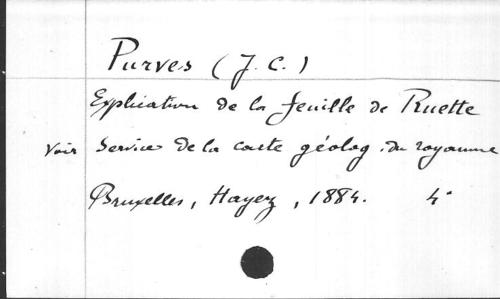 Purves (J. C.)
Explication de la feuille de Ruette
Voir Service de la carte géolog. du royaume
Bruxelles, Hayez, 1884. 4°